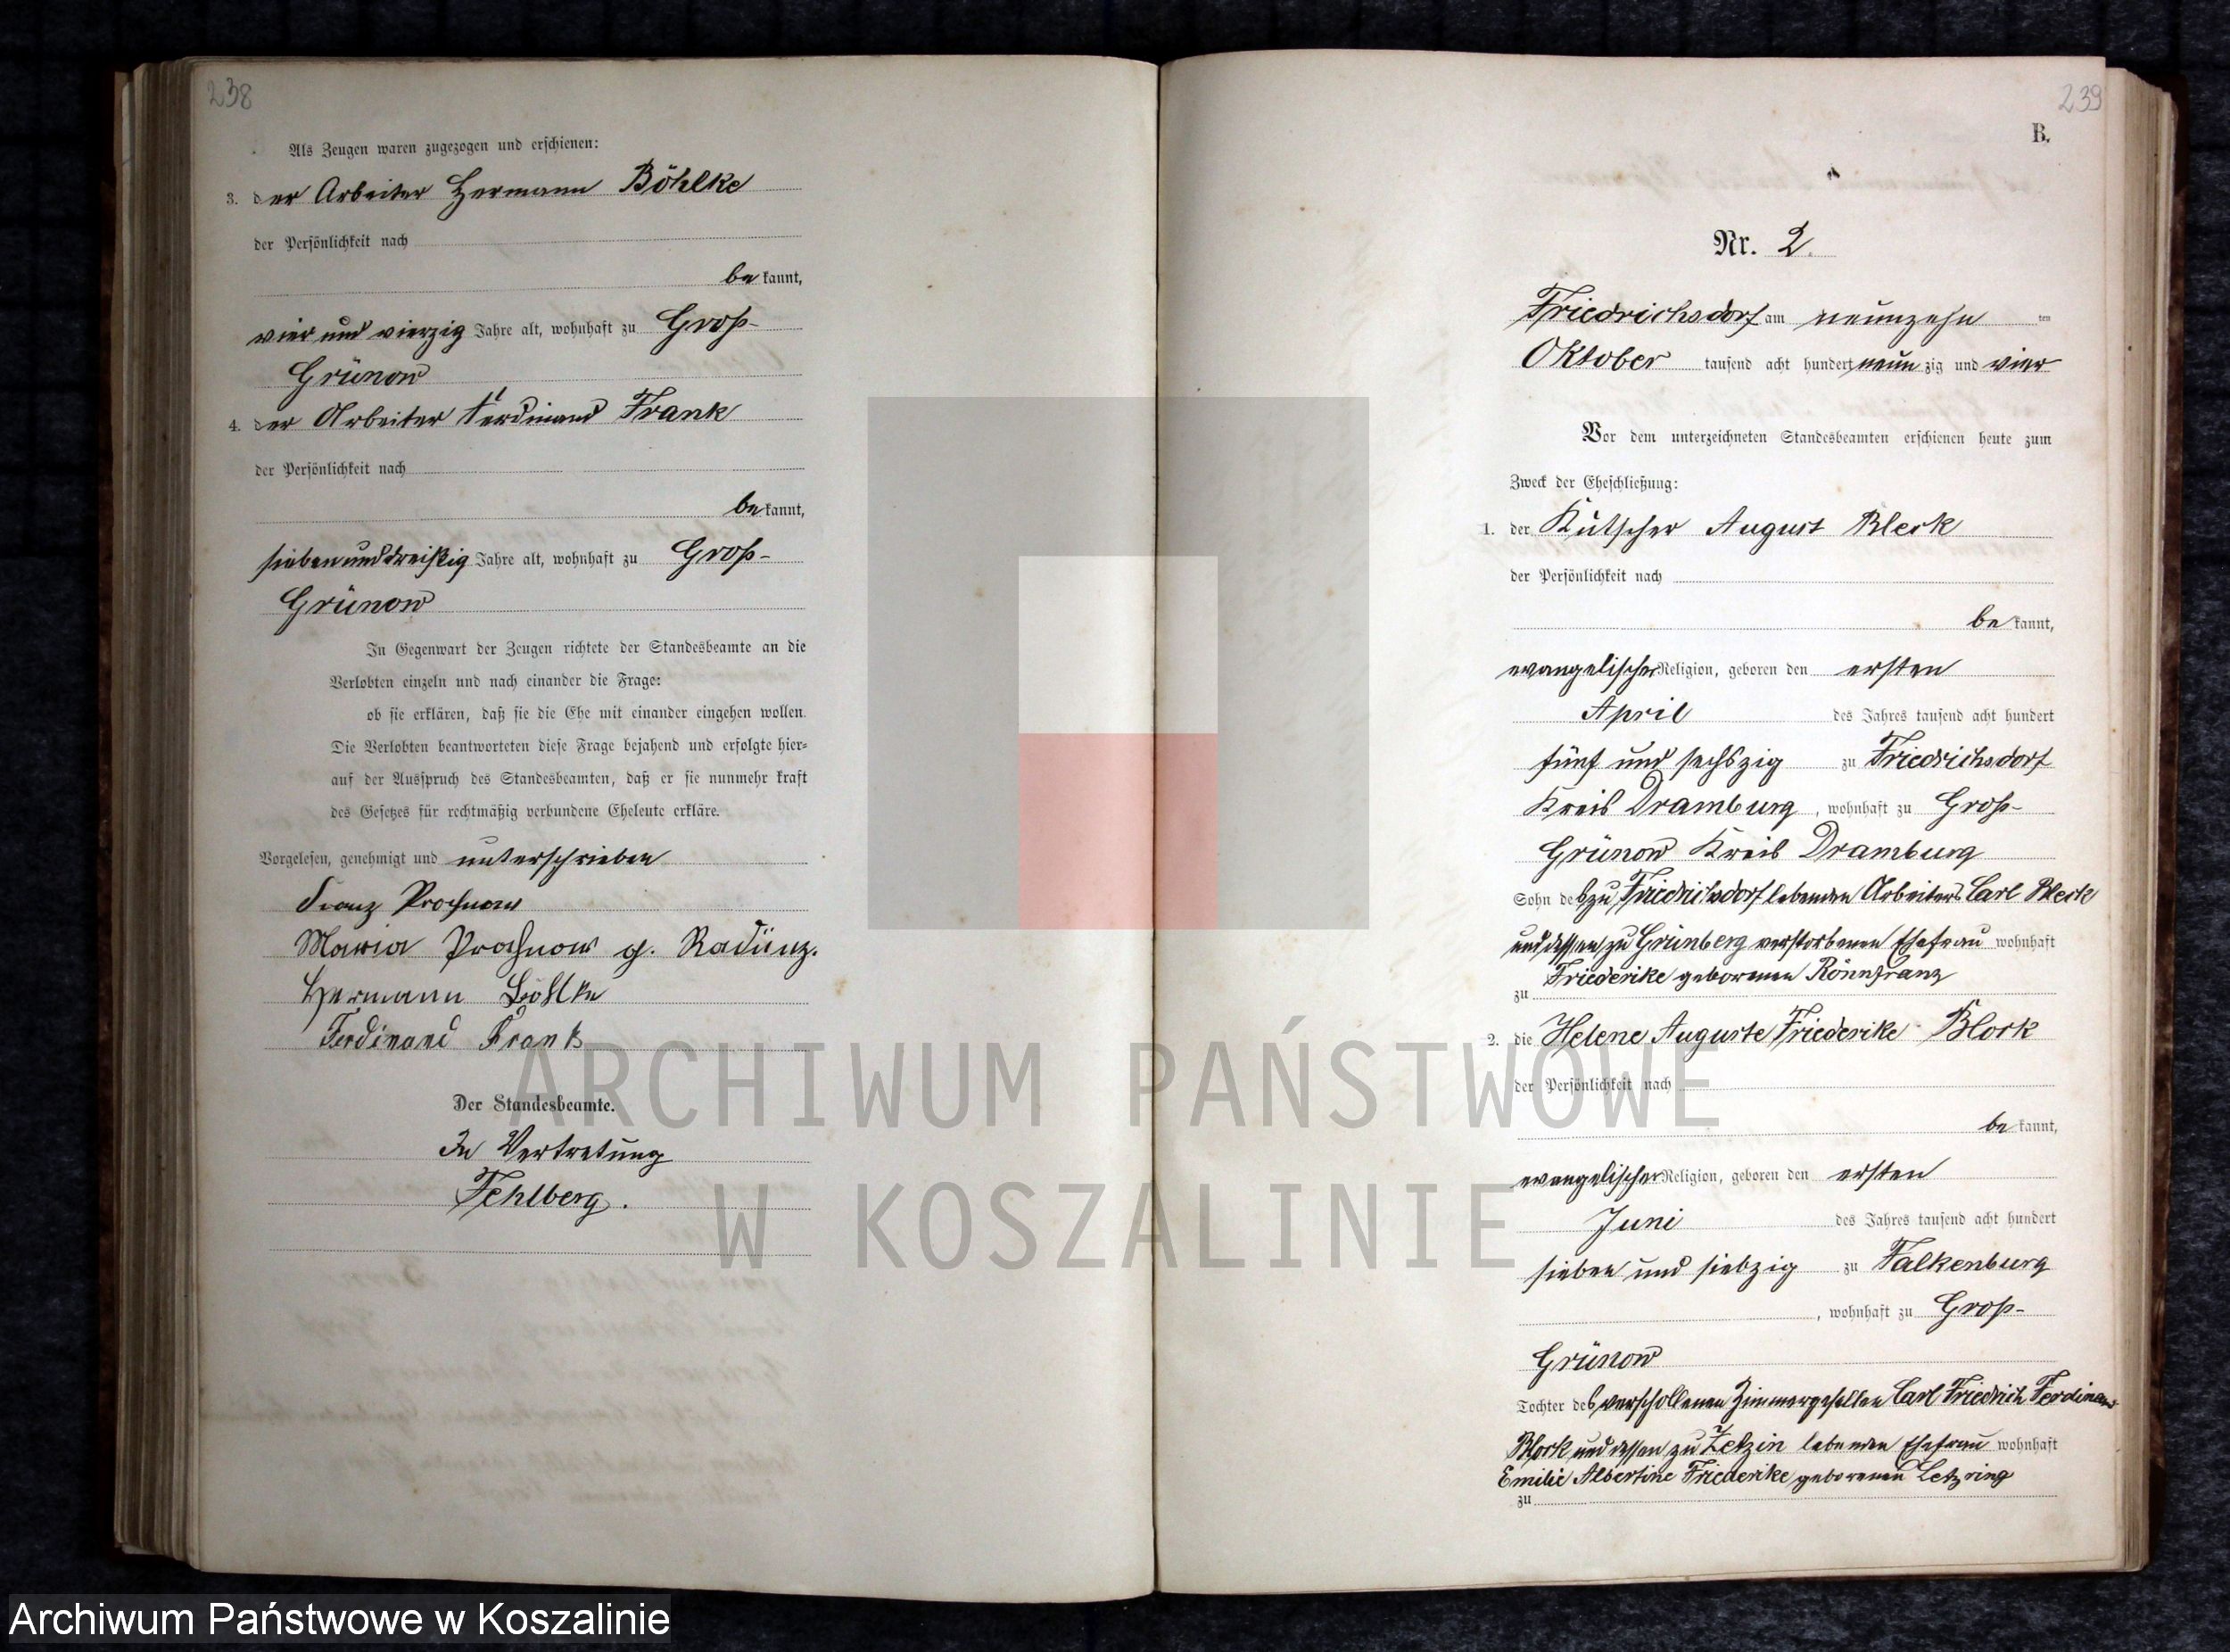 238
Als Zeugen waren zugezogen und erschienen:
3. der Arbeiter Hermann Böhlke
der Persönlichkeit nach
be kannt,
vier und vierzig Jahre alt, wohnhaft zu Groß-
Grünow
4. der Arbeiter Ferdinand Frank
der Persönlichkeit nach
be kannt,
sieben und dreißig Jahre alt, wohnhaft zu Groß-
Grünow
In Gegenwart der Zeugen richtete der Standesbeamte an die
Verlobten einzeln und nach einander die Frage:
ob sie erklären, daß sie die Ehe mit einander eingehen wollen.
Die Verlobten beantworteten diese Frage bejahend und erfolgte hier-
auf der Ausspruch des Standesbeamten, daß er sie nunmehr kraft
des Gesetzes für rechtmäßig verbundene Eheleute erkläre.
Vorgelesen, genehmigt und unterschrieben
Franz Prochnow
Maria Prochnow g. Radünz.
Hermann Böhlke
Ferdinand Frank
Der Standesbeamte.
In Vertretung
Fehlberg.
239
B.
Nr. 2.
Friedrichsdorf am neunzehn ten
Oktober tausend acht hundert neun zig und vier
Vor dem unterzeichneten Standesbeamten erschienen heute zum
Zweck der Eheschließung:
1. der Kutscher August Bleck
der Persönlichkeit nach
be kannt,
evangelischer Religion, geboren den ersten
April des Jahres tausend acht hundert
fünf und sechszig zu Friedrichsdorf
Kreis Dramburg, wohnhaft zu Groß-
Grünow Kreis Dramburg
Sohn des zu Friedrichsdorf lebenden Arbeiters Carl Bleck
und dessen zu Grünberg verstorbenen Ehefrau wohnhaft
Friederike geborenen Rönnfranz
zu
2. die Helene Auguste Friederike Block
der Persönlichkeit nach
be kannt,
evangelischer Religion, geboren den ersten
Juni des Jahres tausend acht hundert
sieben und siebzig zu Falkenburg
, wohnhaft zu Groß-
Grünow
Tochter des verschollenen Zimmergesellen Carl Friedrich Ferdinand
Block und dessen zu Zetzin lebenden Ehefrau wohnhaft
Emilie Albertine Friederike geborenen Letzring
zu
ARCHIWUM PAŃSTWOWE
W KOSZALINIE
Archiwum Państwowe w Koszalinie